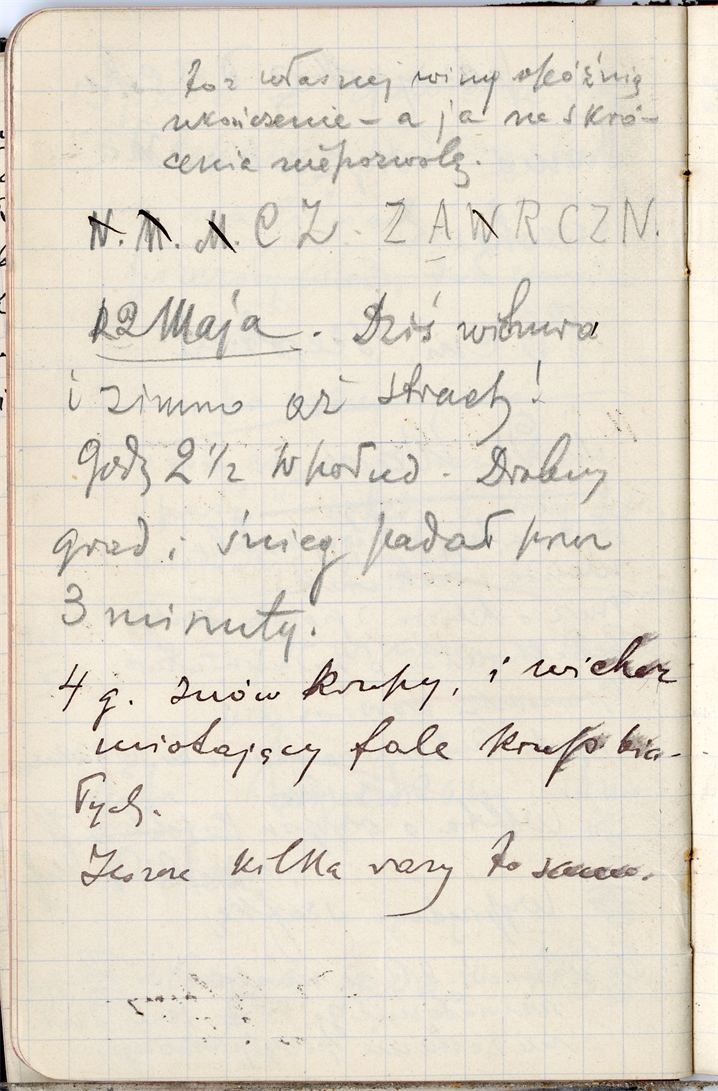 to z własnej winy opóźnią
ukończenie – a ja na skró-
cenia niepozwolę.
N. M. M. C Z. Z A W R C Z N.
12 Maja. Dziś wichura
i zimno aż strach!
Godz 2 1/2 popołud. Drobny
grad i śnieg padał przez
3 minuty.
4 g. znów krupy, i wicher
miotający fale krup bia-
łych.
Jeszcze kilka razy to samo.